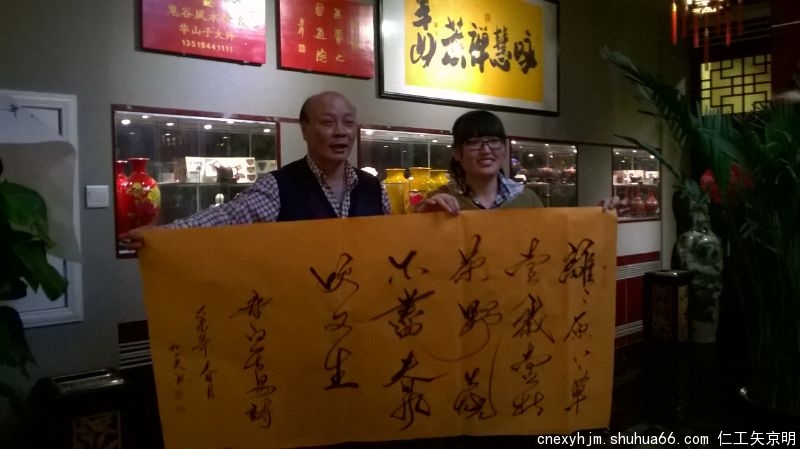 鬼谷风水
华山子大师
13519441111
咏慧禅茶
離〻原上草
壹歲壹枯
榮野火燒
不盡春風
吹又生
白居易詩
乙未年春月
cnexyhjm.shuhua66.com 仁工矢京明